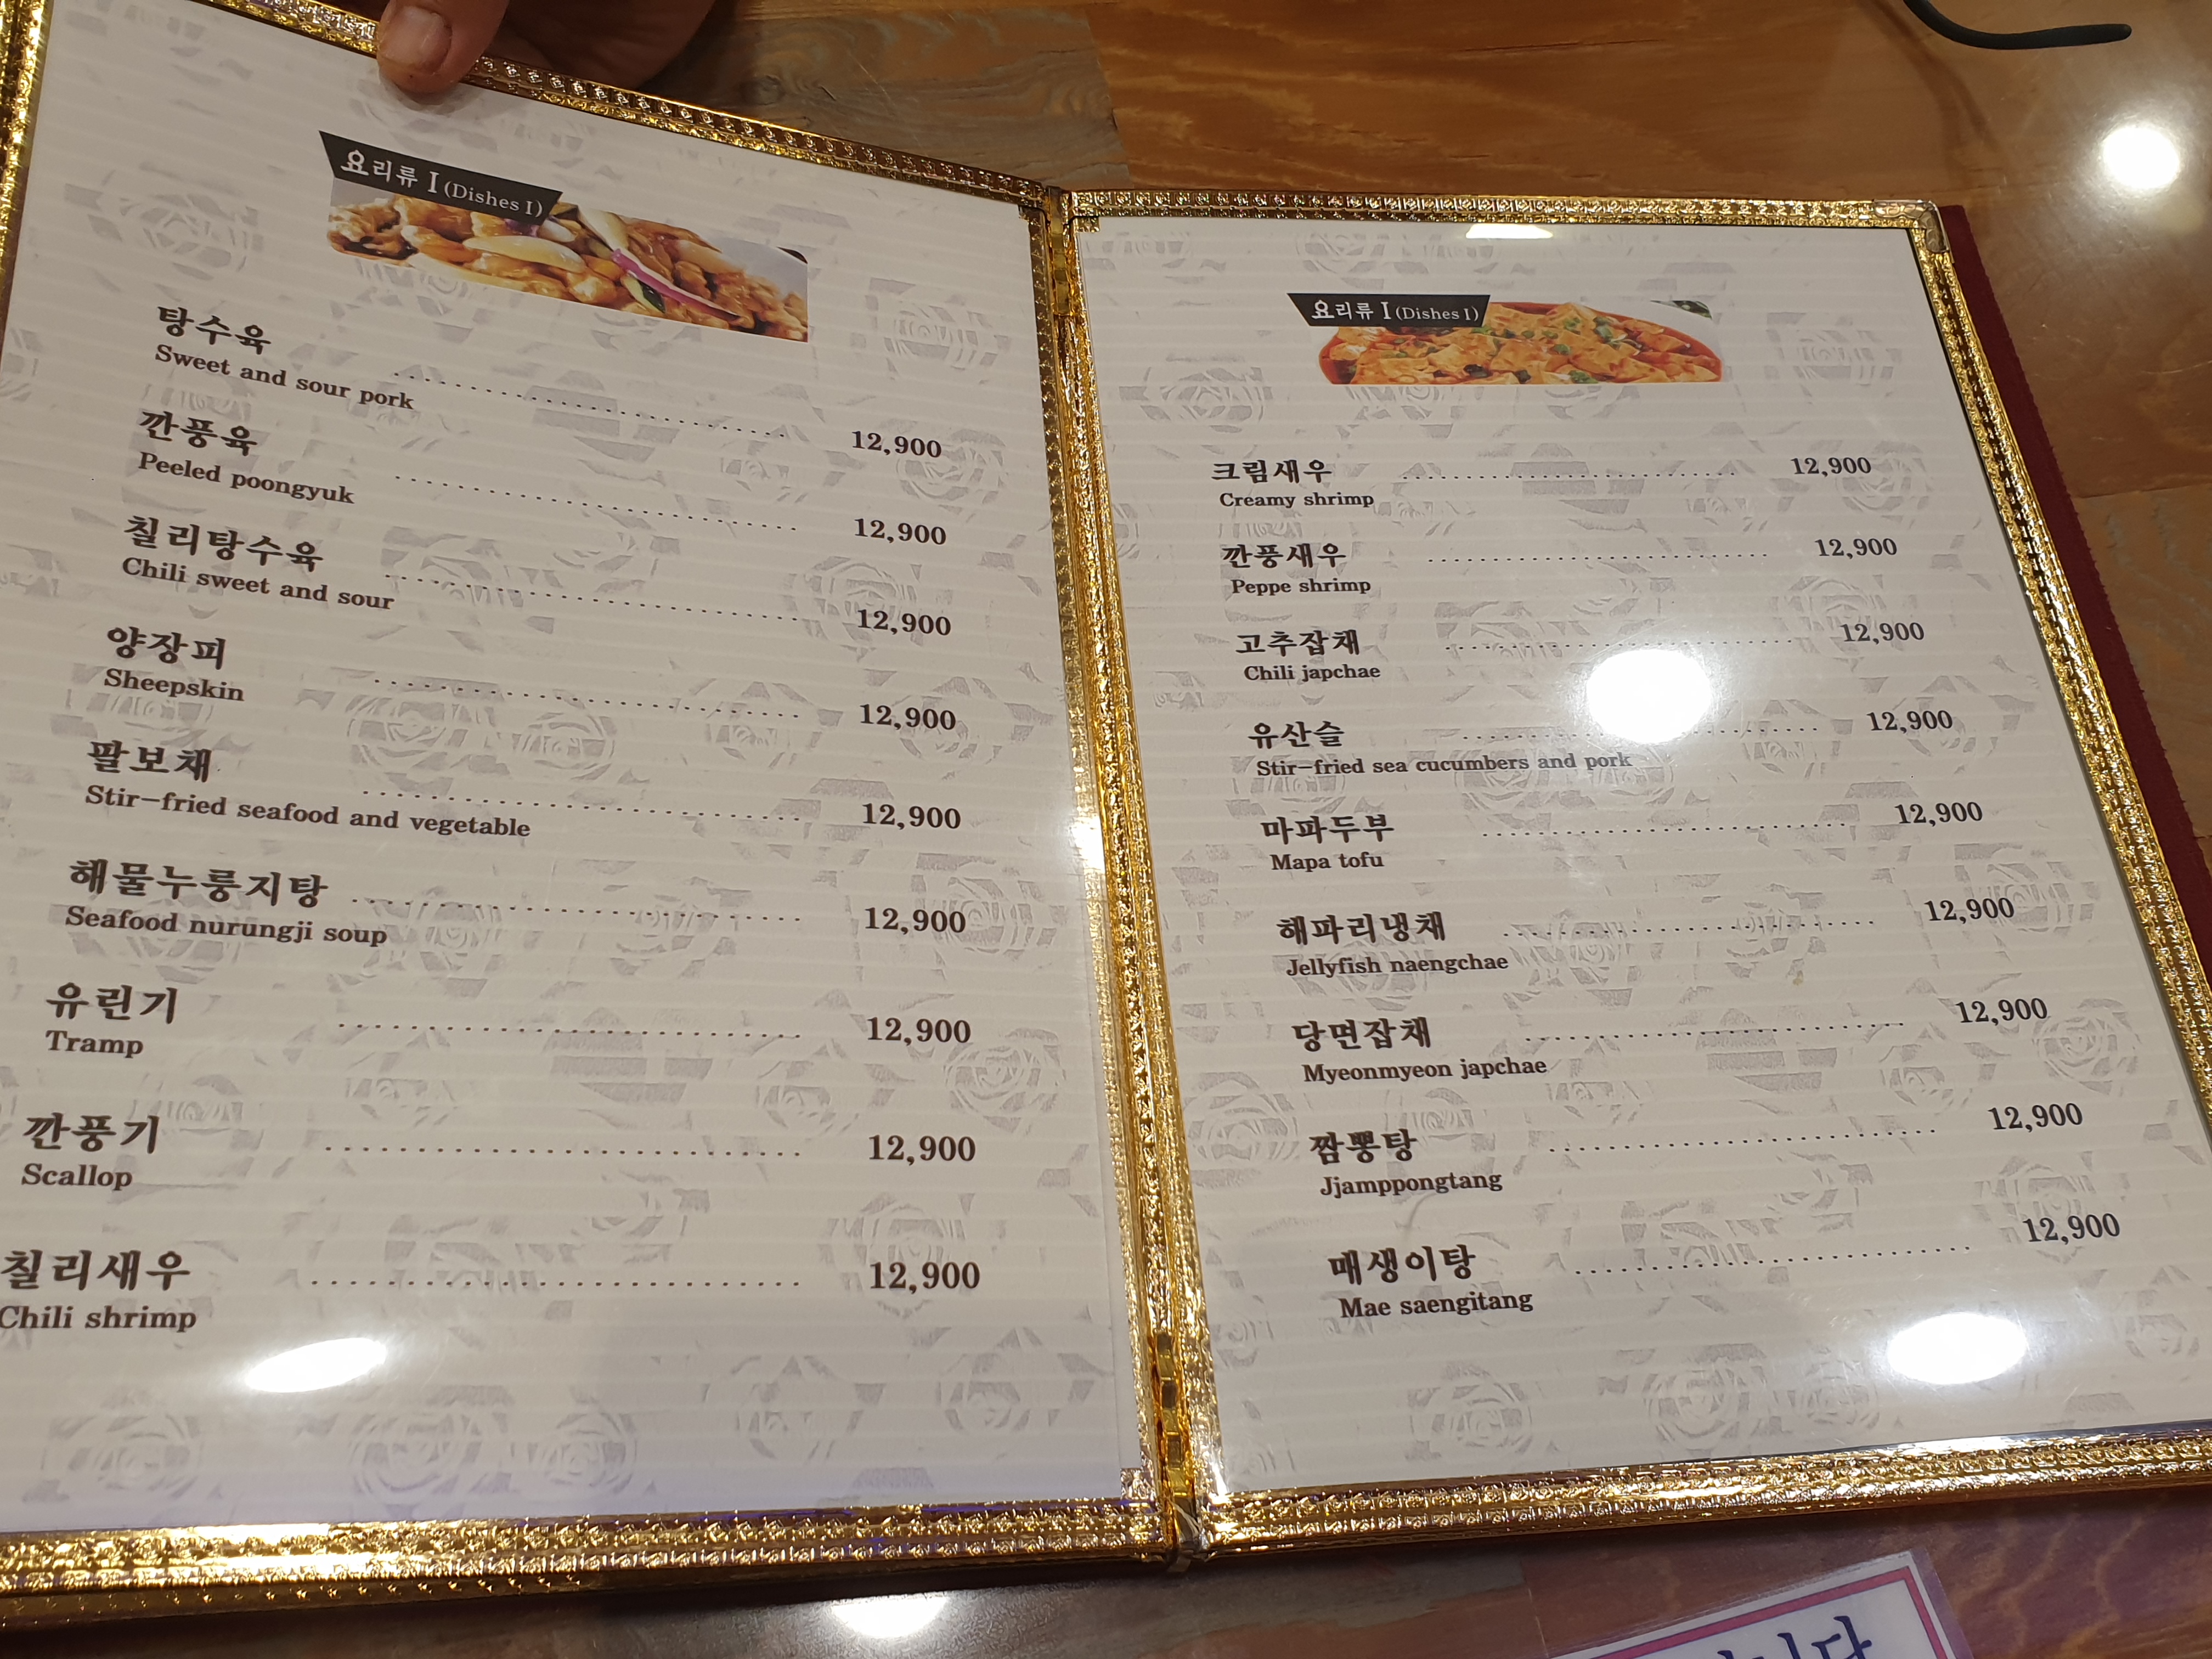 요리류 I (Dishes I)
탕수육 12,900
Sweet and sour pork
깐풍육 12,900
Peeled poongyuk
칠리탕수육 12,900
Chili sweet and sour
양장피 12,900
Sheepskin
팔보채 12,900
Stir-fried seafood and vegetable
해물누룽지탕 12,900
Seafood nurungji soup
유린기 12,900
Tramp
깐풍기 12,900
Scallop
칠리새우 12,900
Chili shrimp
요리류 I (Dishes I)
크림새우 12,900
Creamy shrimp
깐풍새우 12,900
Peppe shrimp
고추잡채 12,900
Chili japchae
유산슬 12,900
Stir-fried sea cucumbers and pork
마파두부 12,900
Mapa tofu
해파리냉채 12,900
Jellyfish naengchae
당면잡채 12,900
Myeonmyeon japchae
짬뽕탕 12,900
Jjamppongtang
매생이탕 12,900
Mae saengitang